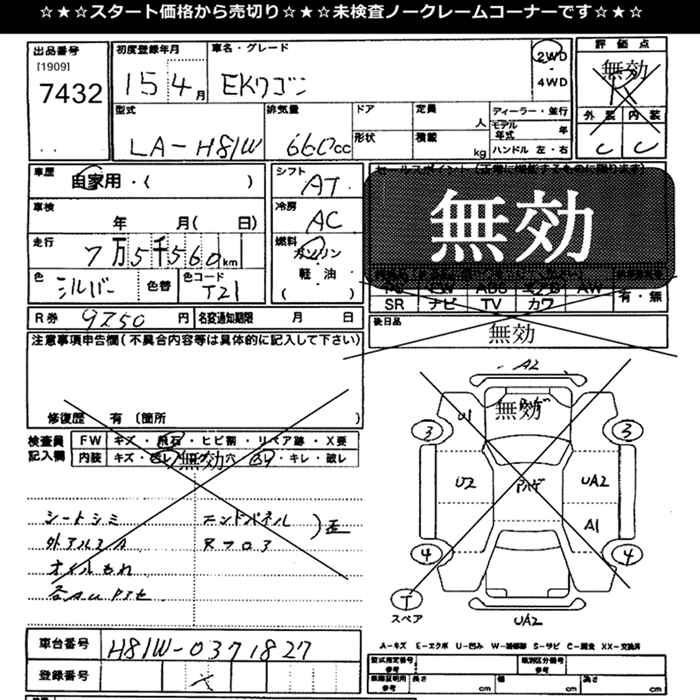 ☆★☆スタート価格から売切り☆★☆未検査ノークレームコーナーです☆★☆
出品番号
[1909]
7432
初度登録年月
15 4月
車名・グレード
EKワゴン
2WD
・
4WD
評価点
無効
R
外装 内装
C C
型式
LA-H81W
排気量
660cc
ドア
形状
定員 人
積載 kg
ディーラー・並行
モデル年式 年
ハンドル 左・右
車歴
自家用・( )
車検
年 月( 日)
走行
7万5千560km
色
シルバー
色替
色コード
T21
シフト
AT
冷房
AC
燃料
ガソリン
・
軽・油
( )
セールスポイント
無効
SR ナビ TV カワ
有・無
R券 9750円
名変通知期限 月 日
後日品
無効
注意事項申告欄(不具合内容等は具体的に記入して下さい)
修復歴 有 (箇所
検査員記入欄
FW キズ・飛石・ヒビ割・リペア跡・X要
内装 キズ・ ・キレ・破レ
無効
シートシミ
オイルもれ
A2
無効
U1
3
3
U2
UA2
A1
4
4
T
スペア
UA2
A-キズ E-エクボ U-凹み W-補修跡 S-サビ C-腐食 XX-交換済
車台番号
H81W-0371827
登録番号
型式指定番号
参考
類別区分番号
参考
長さ cm
幅 cm
高さ cm